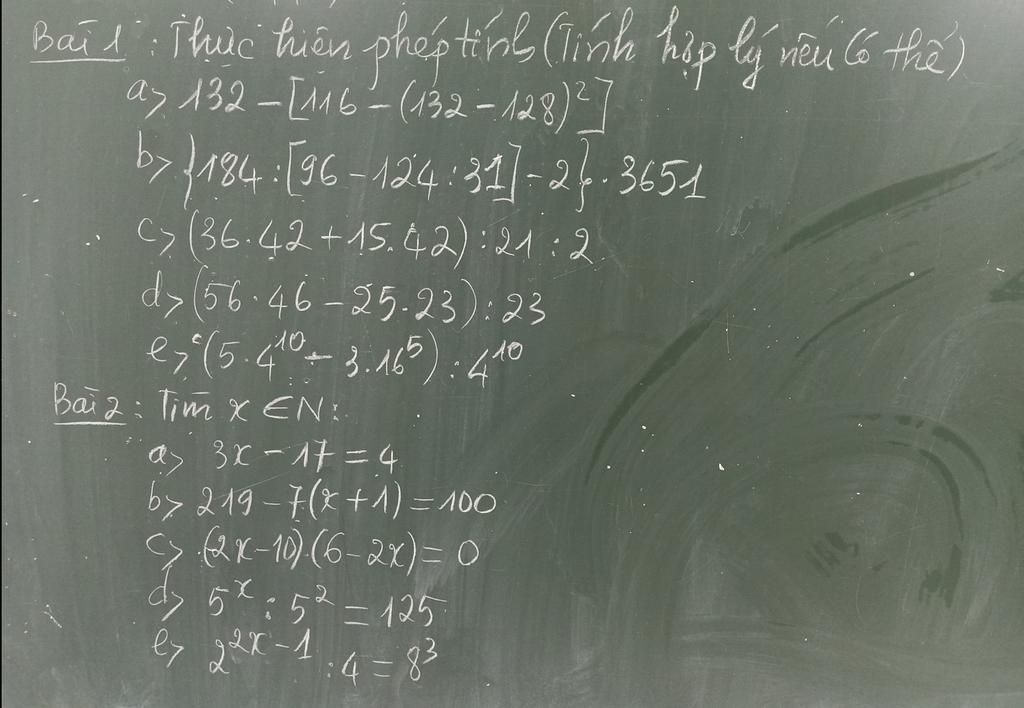 Bài 1 : Thực hiện phép tính (Tính hợp lý nếu có thể)
a> 132 - [116 - (132 - 128)²]
b> {184 : [96 - 124 : 31] - 2} . 3651
c> (36.42 + 15.42) : 21 : 2
d> (56.46 - 25.23) : 23
e> (5.4¹⁰ - 3.16⁵) : 4¹⁰
Bài 2 : Tìm x ∈ N :
a> 3x - 17 = 4
b> 219 - 7(x + 1) = 100
c> (2x - 10).(6 - 2x) = 0
d> 5ˣ : 5² = 125
e> 2²ˣ⁻¹ : 4 = 8³